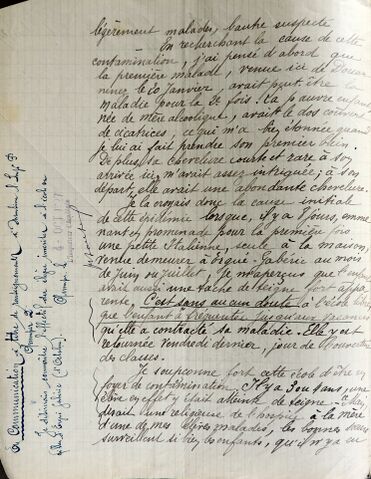 légèrement malades, l'autre suspecte
En recherchant la cause de cette
contamination, j'ai pensé d'abord que
la première malade, venue ici de Douar
nenez le 10 janvier, avait peut-être la
maladie pour la 2e fois. La pauvre enfant
née de mère alcoolique, avait le dos couvert
de cicatrices, ce qui m'a bien étonnée quand
je lui ai fait prendre son premier bain.
De plus, sa chevelure courte et rare à son
arrivée ici, m'avait assez intriguée ; à son
départ, elle avait une abondante chevelure.
Je la croyais donc la cause initiale
de cette épidémie lorsque, il y a 8 jours, emme
nant en promenade pour la première fois
une petite Italienne, seule à la maison,
venue demeurer à Ergué-Gabéric au mois
de juin ou juillet, je m'aperçus que l'enfant
avait aussi une tache de teigne fort appa
rente. C'est sans aucun doute à l'école libre
que l'enfant a fréquentée jusqu'aux vacances
qu'elle a contracté sa maladie. Elle y est
retournée vendredi dernier, jour de l'ouverture
des classes.
Je soupçonne fort cette école d'être un
foyer de contamination. Il y a 3 ou 4 ans, une
élève en effet y était atteinte de teigne.
disait une religieuse de l'hospice à la mère
d'une de mes élèves malades, les bonnes sœurs
surveillent si bien les enfants, qu'il n'y a eu
Communication à titre de renseignement à Monsieur l'Insp
Quimper